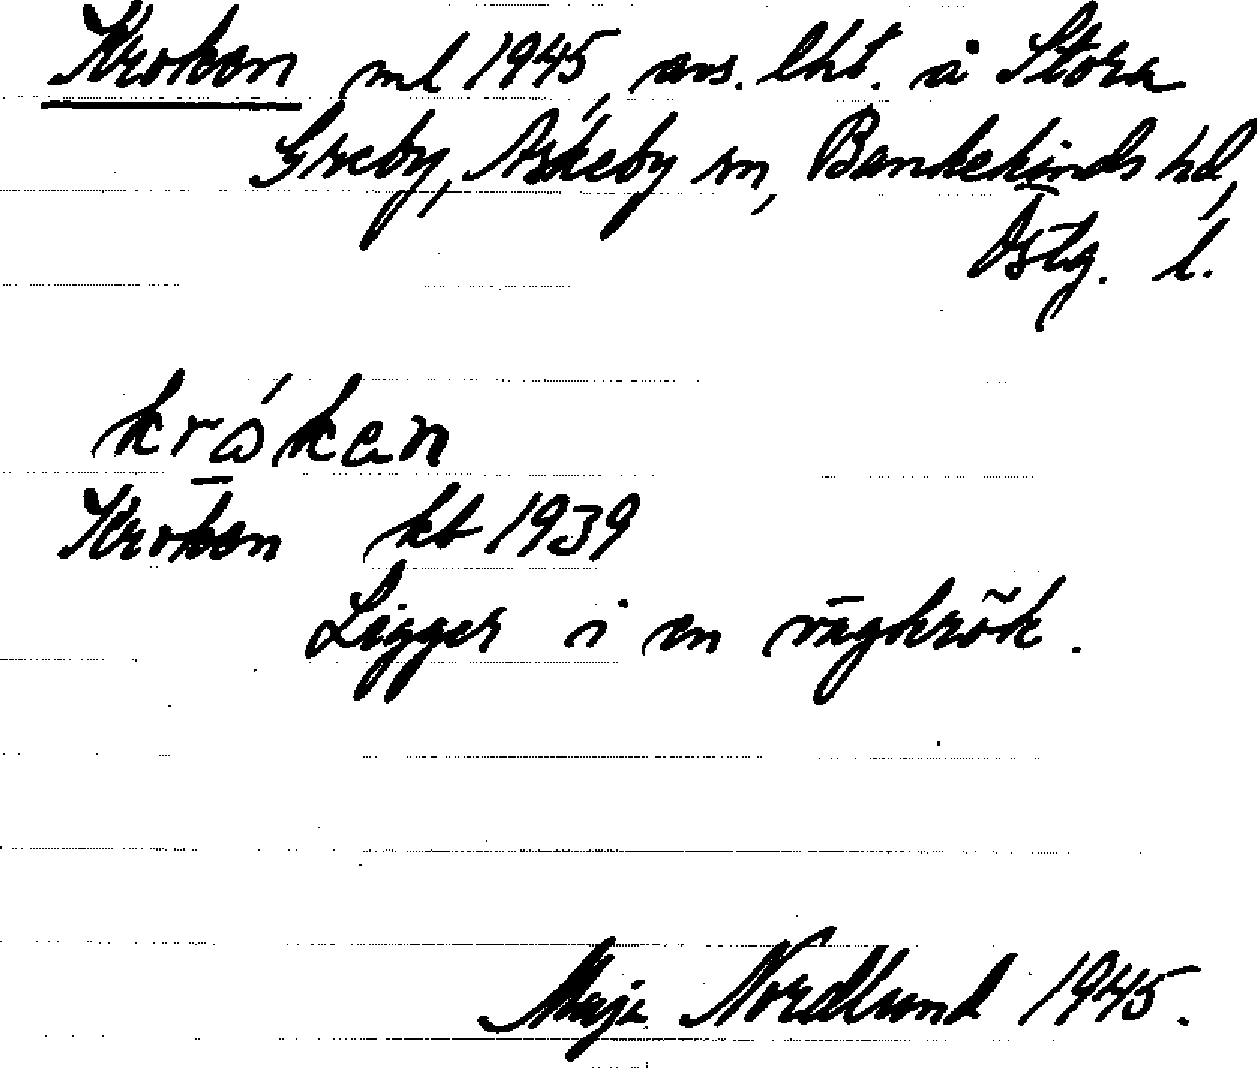 Kroken ml 1945, avs. lht. å Stora
Greby, Askeby sn, Bankekinds hd,
Östg. l.
krókan
Kroken kb 1939
Ligger i en vägkrök.
Maja Nordlund 1945.